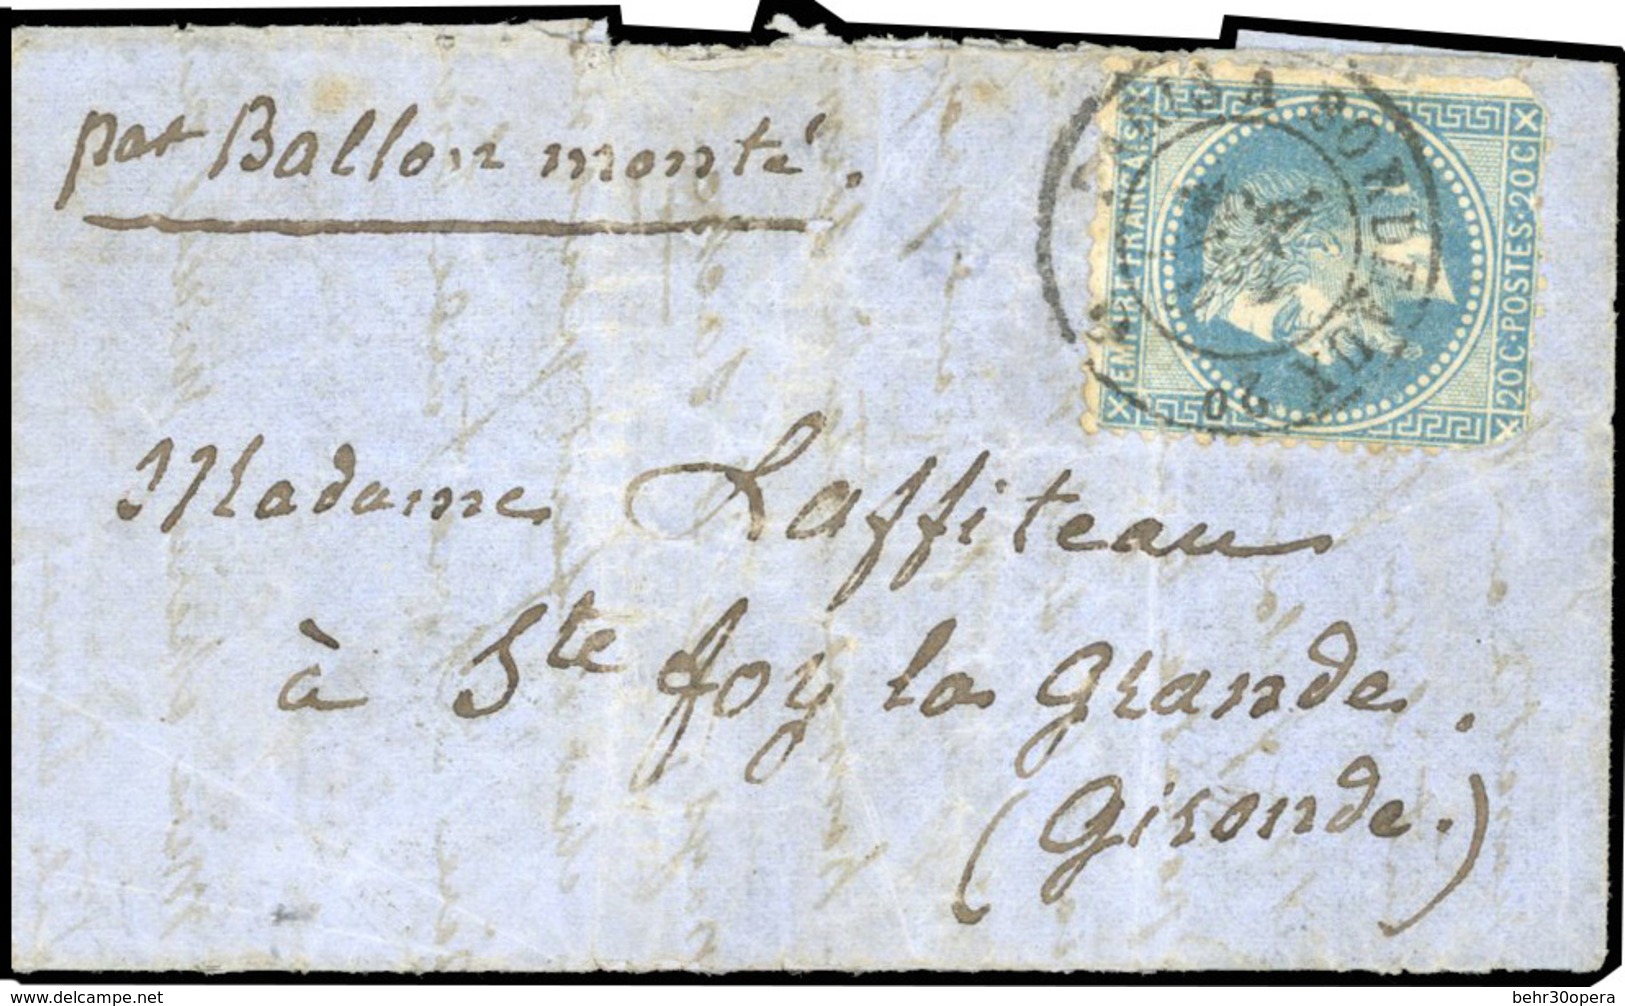 par Ballon monté.
EMPIRE FRANÇAIS
20 C · POSTES · 20 C
PARIS A BORDEAUX
Madame Laffiteau
à Ste foy la Grande.
(Gironde.)
behr30opera